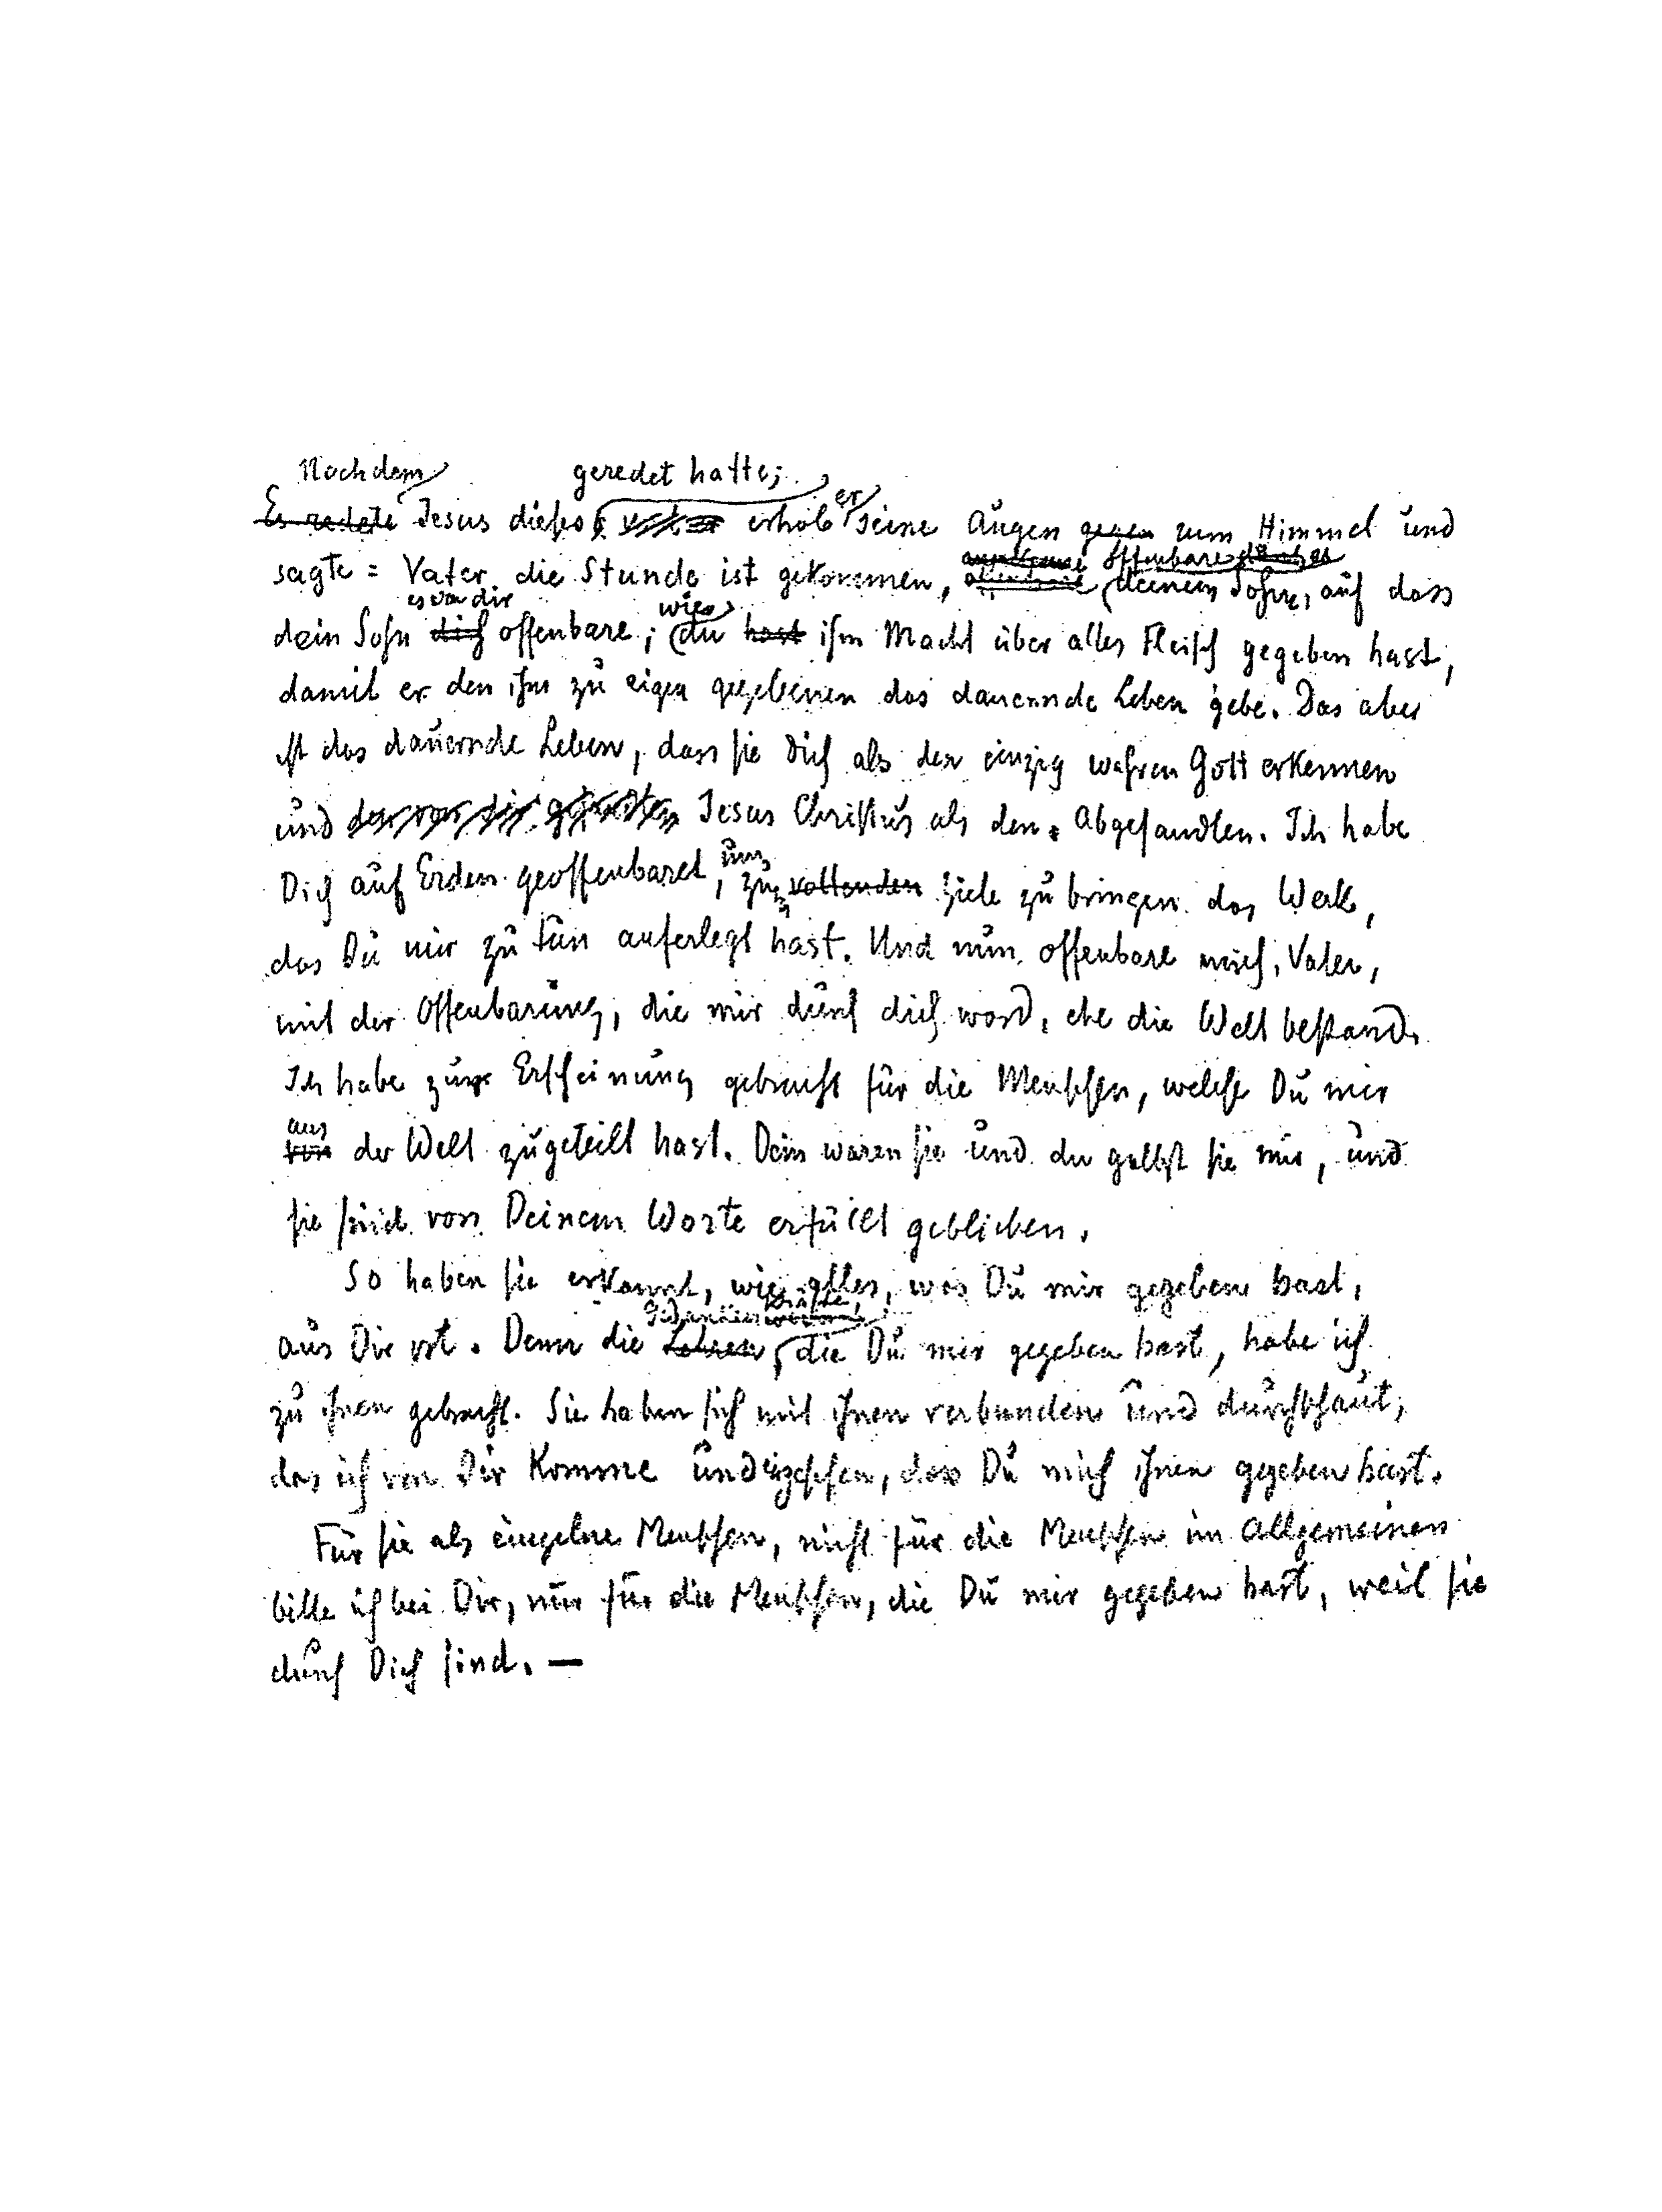 Nachdem geredet hatte;
Es redete Jesus dieses, erhob er seine Augen gegen zum Himmel und
offenbare
sagte: Vater, die Stunde ist gekommen, deinem Sohne, auf dass
es von dir wie
dein Sohn dich offenbare; du hast ihm Macht über alles Fleisch gegeben hast,
damit er den ihm zu eigen gegebenen das dauernde Leben gebe. Das aber
ist das dauernde Leben, dass sie Dich als den einzig wahren Gott erkennen
und den von dir gesandten Jesus Christus als den Abgesandten. Ich habe
um
Dich auf Erden geoffenbaret, zu vollenden Ziele zu bringen das Werk,
das Du mir zu tun auferlegt hast. Und nun offenbare mich, Vater,
mit der Offenbarung, die mir durch dich ward, ehe die Welt bestand.
Ich habe zur Erscheinung gebracht für die Menschen, welche Du mir
aus
von der Welt zugeteilt hast. Dein waren sie und du gabst sie mir, und
sie sind von Deinem Worte erfüllt geblieben.
So haben sie erkannt, wie alles, was Du mir gegeben hast,
Gedankenkräfte,
aus Dir ist. Denn die Lehren, die Du mir gegeben hast, habe ich
zu ihnen gebracht. Sie haben sich mit ihnen verbunden und durchschaut,
das ich von Dir komme und eingesehen, dass Du mich ihnen gegeben hast.
Für sie als einzelne Menschen, nicht für die Menschen im allgemeinen
bitte ich bei Dir, nur für die Menschen, die Du mir gegeben hast, weil sie
durch Dich sind. —